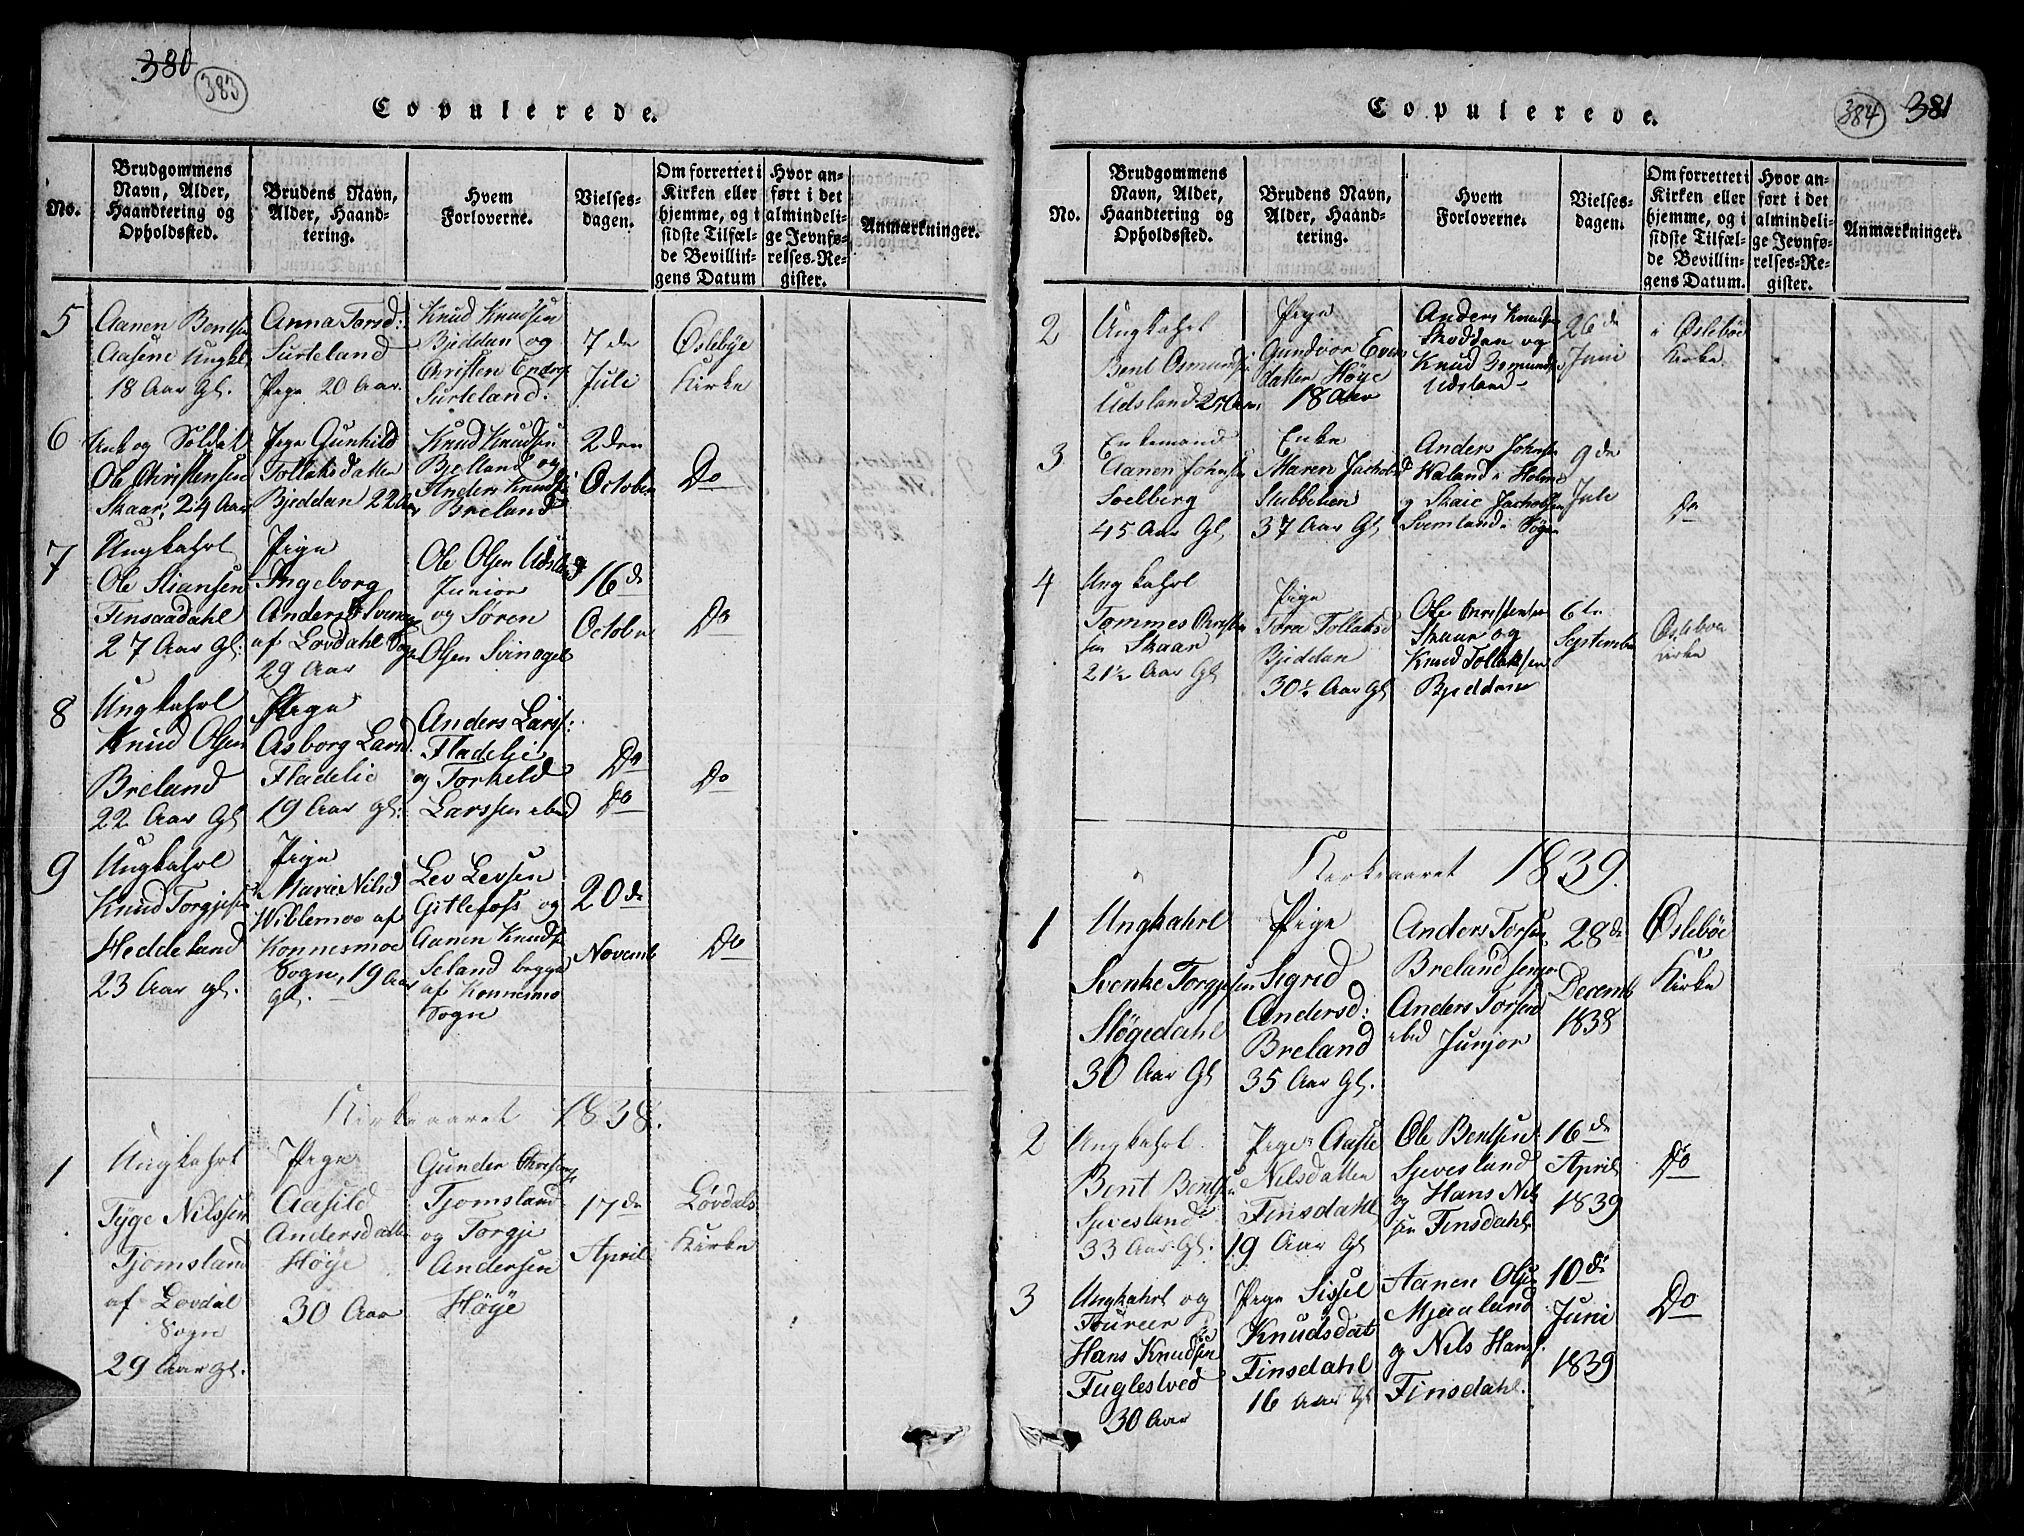 380
383
Copulerede.
No.
Brudgommens
Navn, Alder,
Haandtering og
Opholdssted.
Brudens Navn,
Alder, Haand-
tering.
Hvem
Forloverne.
Vielses-
dagen.
Om forrettet i
Kirken eller
hjemme, og i
sidste Tilfæl-
de Bevillin-
gens Datum
Hvor an-
ført i det
almindeli-
ge Jevnfø-
relses-Re-
gister.
Anmærkninger.
5
Aanen Bentsen
Aasene Ungk
18 Aar Gl.
Anna Torsd:
Surteland
Pige 20 Aar.
Knud Knudsen
Bjeddan og
Christen Endres
Surteland.
7 de
Juli
Øslebye
Kirke
6
Enk og Soldat
Ole Christensen
Skaar, 24 Aar
Pige Gunhild
Tollaksdatter
Bjeddan 22 Aar
Knud Knudsen
Bjelland og
Anders Knuds
Breland
2den
October
Do
7
Ungkahrl
Ole Stiansen
Finsaadahl
27 Aar Gl:
Pige
Ingeborg
Anders
af Lovdahl Sogn
29 Aar
Ole Olsen Udsland
Junior
og Søren
Olsen Svinogel
16de
October
Do
8
Ungkahrl
Knud Olsen
Breland
22 Aar Gl
Pige
Asborg Larsd
Fladelie
19 Aar gl:
Anders Larss:
Fladelie
og Torkeld
Larssen ibid
Do
Do
Do
9
Ungkahrl
Knud Torgjusen
Heddeland
23 Aar gl.
Pige
Marie Nilsd
Wiblemoe af
Konnesmoe
Sogn, 19 Aar
Gl.
Lev Levsen
Gitlefoss og
Aanen Knuds
Seland begge
af Konnesmo
Sogn
20de
Novemb
Do
Kirkeaaret 1838.
1
Ungkahrl
Tyge Nilssen
Tjomsland
af Lovdal
Sogn
29 Aar gl.
Pige
Aasild
Andersdatter
Høye
30 Aar
Gunder
Tjomsland
og Torgje
Andersen
Høye
17de
April
Løvdals
Kirke
384
381
Copulerede.
No.
Brudgommens
Navn, Alder,
Haandtering og
Opholdssted.
Brudens Navn,
Alder, Haand-
tering.
Hvem
Forloverne.
Vielses-
dagen.
Om forrettet i
Kirken eller
hjemme, og i
sidste Tilfæl-
de Bevillin-
gens Datum.
Hvor an-
ført i det
almindeli-
ge Jevnfø-
relses-Re-
gister.
Anmærkninger.
2
Ungkahrl
Bent Osmunds
Udsland 25 Aar
Pige
Gundvor Even
datter Høye
18 Aar
Anders Knudsen
Skoddan og
Knud Osmunds
Udsland
26de
Juni
i Øslebøe
Kirke
3
Enkemand
Aanen Johnsen
Soelberg
45 Aar Gl.
Enke
Maren Jacobsd
Stubberuen
37 Aar Gl
Anders Johnsen
Haland i Holme
og Skaie Jacobsen
Svemland i Søgne
9de
Jule
Do
4
Ungkahrl
Tommes Christen
sen Skaar
21½ Aar Gl
Pige
Tora Tollaksd
Bjeddan
30½ Aar Gl
Ole Christensen
Skaar og
Knud Tollaksen
Bjeddan
6te
September
Øsleboe
Kirke
Kirkeaaret 1839.
1
Ungkahrl
Svenke Torgjusen
Støgedahl
30 Aar Gl
Pige
Sigrid
Andersd:
Breland
35 Aar Gl.
Anders Torsen
Breland senjor
Anders Torsen
ibid Junjor
28de
Decemb
1838
Øslebøe
Kirke
2
Ungkahrl
Bent Bentsen
Sjevesland
33 Aar Gl.
Pige Aasle
Nilsdatter
Finsdahl
19 Aar Gl
Ole Bentsen
Sjevesland
og Hans Nils
sen Finsdahl
16de
April
1839
Do
3
Ungkahrl og
Foureer
Hans Knudsen
Fuglestved
30 Aar
Pige Sissel
Knudsdat
Finsdahl
16 Aar Gl
Aanen Olsen
Mjaaland
og Nils Hans
Finsdahl.
10de
Juni
1839
Do